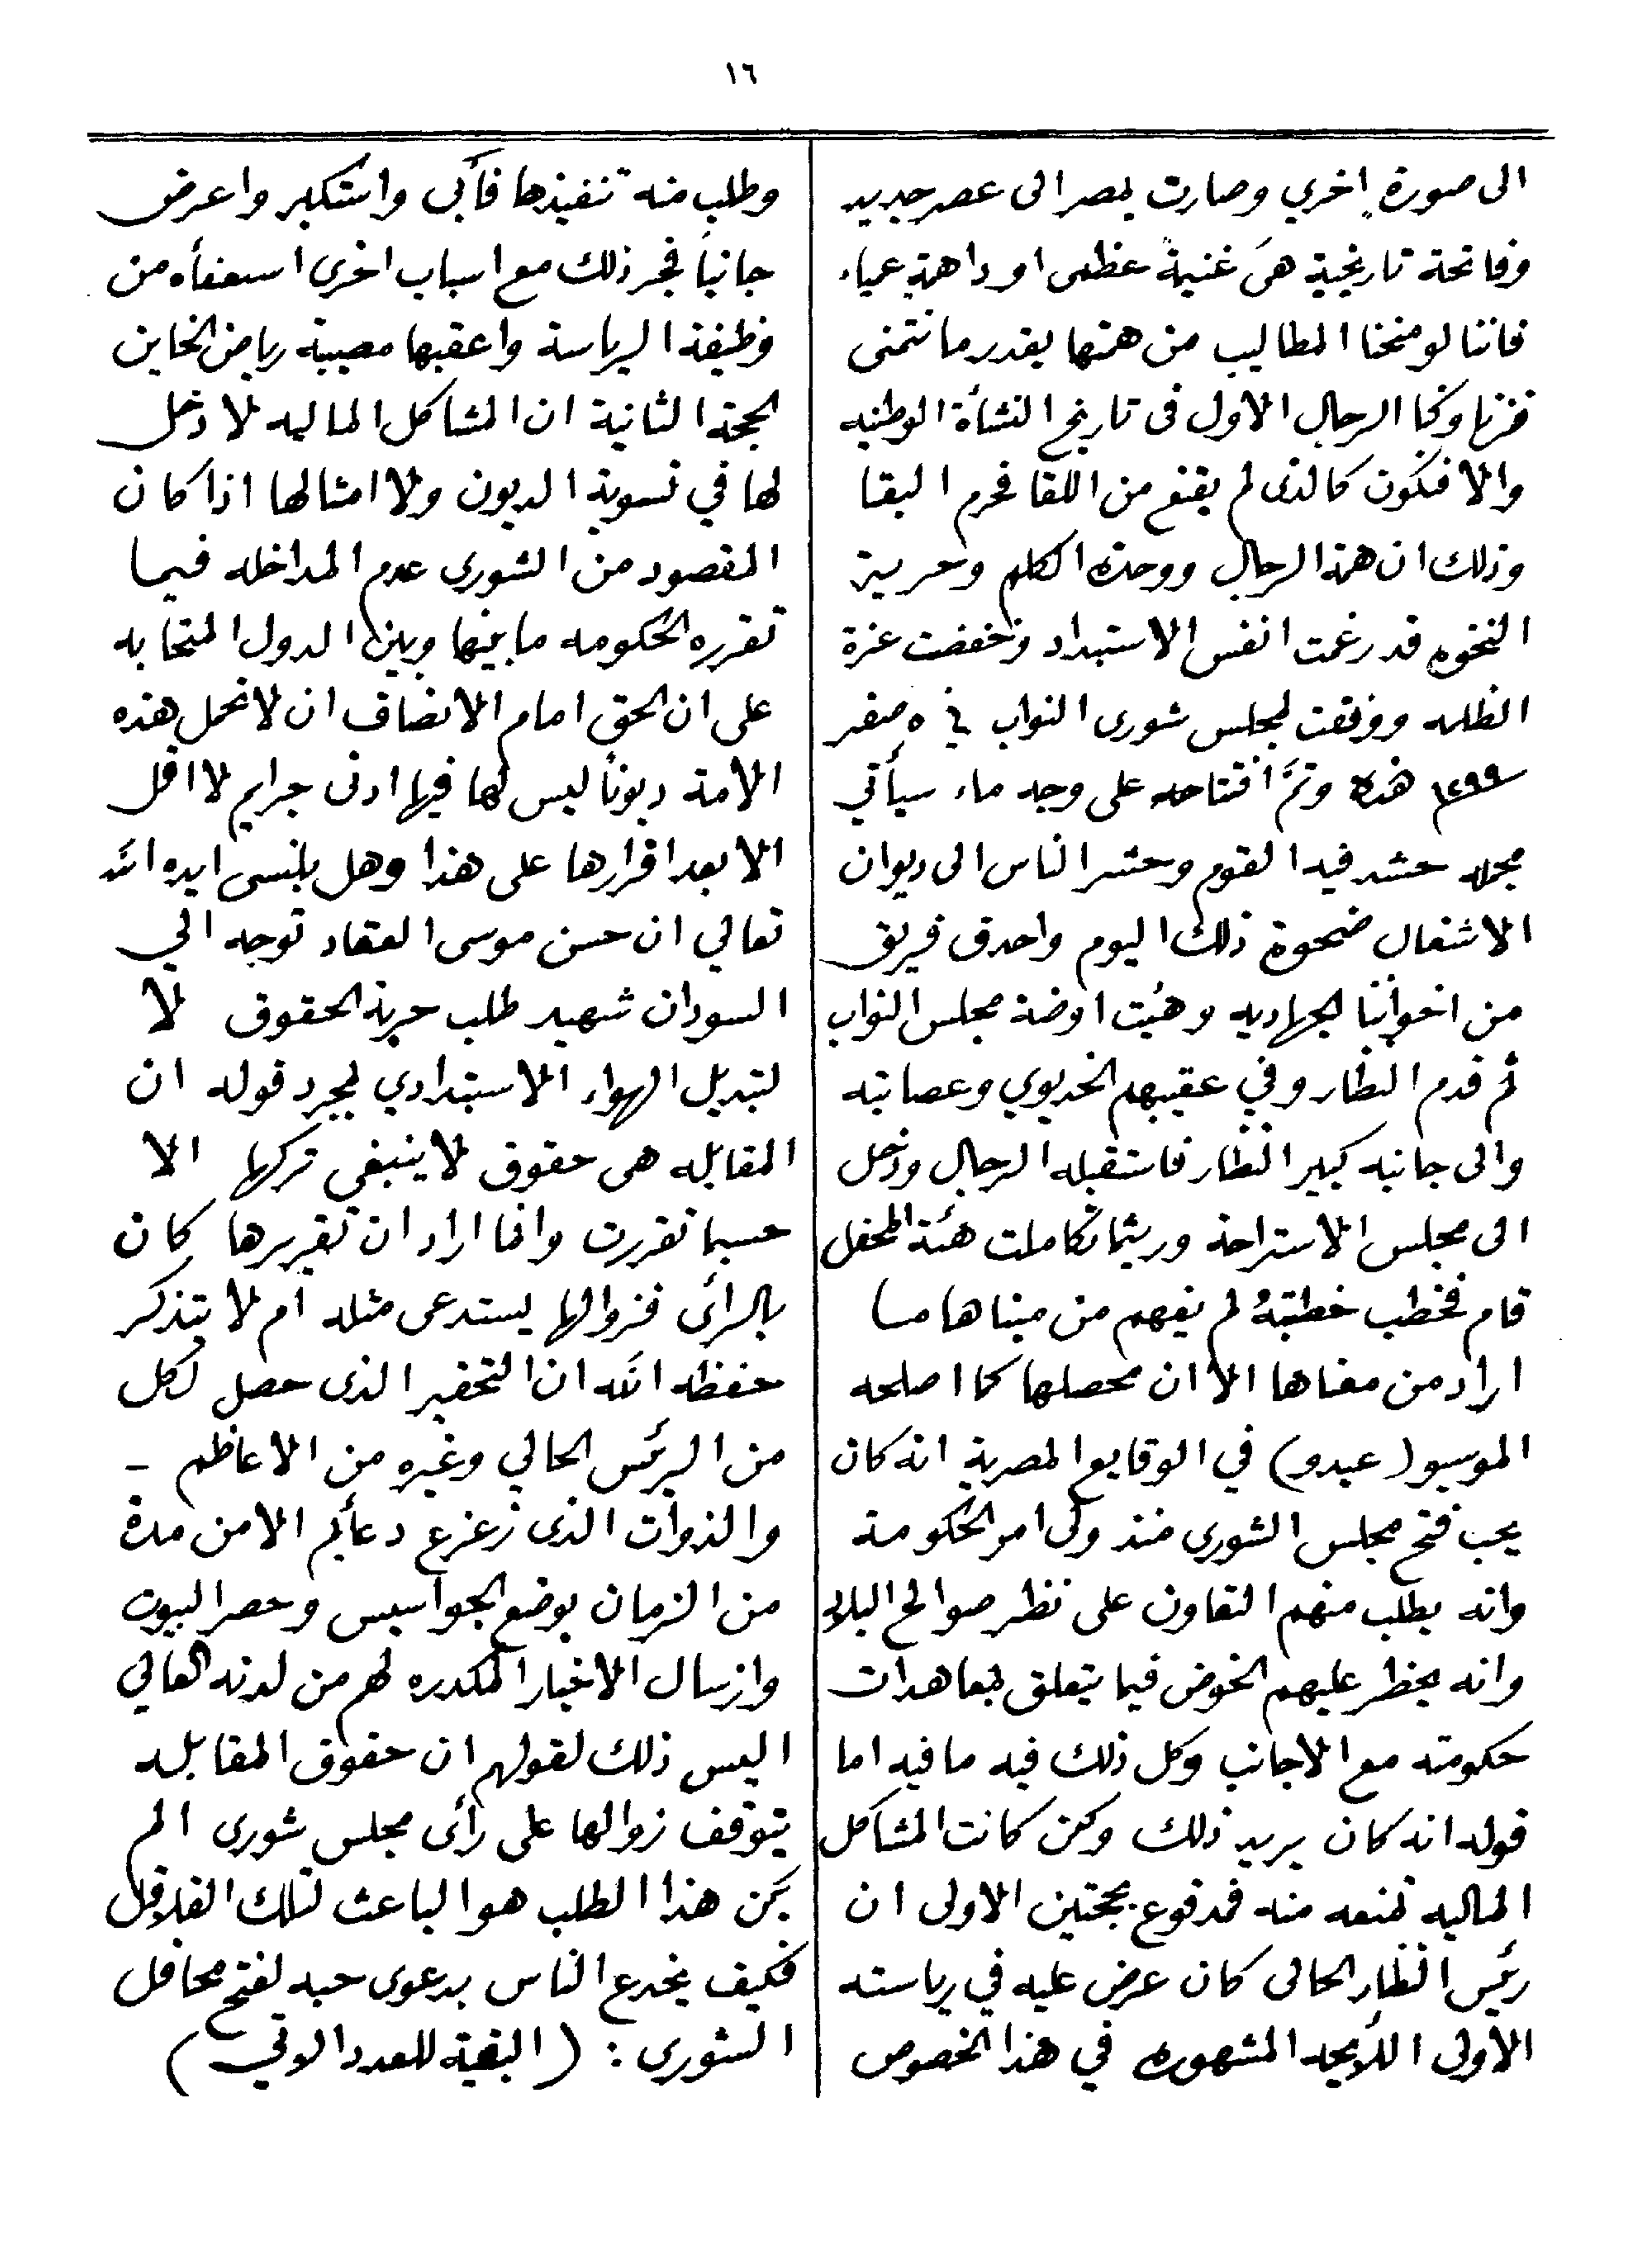 ١٦
الى صورة اخري وصارت بمصر الى عصر جديد
وفاتحة تاريخية هى غنيمة عظمى او داهمة عمياء
فاننا لو منحنا المطاليب من همتها بقدر ما نتمنى
فزنا وكنا الرجال الاول فى تاريخ النشأة الوطنيه
والا فنكون كالذى لم يقنع من اللقا فحرم البقا
وذلك ان همة الرجال ووحدة الكلم وحرية
النخوه قد رغمت انفس الاستبداد وخفضت عزة
الظلمه ووفقت لمجلس شورى النواب في ٥ صفر
١٢٩٩ هذه وتمَّ افتتاحه على وجه ماء سيأتي
مجمله حشد فيه القوم وحشر الناس الى ديوان
الاشغال ضحوة ذلك اليوم واحدق فريق
من اخواننا الجهاديه وهيئت اوضة مجلس النواب
ثم قدم النظار وفي عقيبهم الخديوي وعصابته
والى جانبه كبير النظار فاستقبله الرجال ودخل
الى مجلس الاستراحة وريثما تكاملت هئة المحفل
قام فخطب خطبتهُ لم يفهم من مبناها ما
اراد من معناها الا ان محصلها كما اصلحه
الموسيو (عبدو) في الوقايع المصرية انه كان
يحب فتح مجلس الشورى منذ ولى امر الحكومة
وانه يطلب منهم التعاون على نظر صوالح البلاد
وانه يحظر عليهم الخوض فيما يتعلق بمعاهدات
حكومته مع الاجانب وكل ذلك فيه ما فيه اما
قوله انه كان يريد ذلك ولكن كانت المشاكل
الماليه تمنعه منه فمدفوع بحجتين الاولى ان
رئيس النظار الحالى كان عرض عليه في رياسته
الاولى اللأيحه المشهوره في هذا الخصوص
وطلب منه تنفيذها فأبى واستكبر واعرض
جانباً فجر ذلك مع اسباب اخرى استعفأه من
وظيفة الرياسة واعقبها مصيبة رياض الخاين
الحجة الثانية ان المشاكل الماليه لا دخل
لها في تسوية الديون ولا امثالها اذا كان
المقصود من الشوري عدم المداخله فيما
تقرره الحكومه ما بينها وبين الدول المتحابه
على ان الحق امام الانصاف ان لا تحمل هذه
الامة ديوناً ليس لها فيها ادنى جرايم لا اقل
الا بعد اقرارها على هذا وهل ينسى ايده الله
تعالي ان حسن موسى العقاد توجه الي
السودان شهيد طلب حرية الحقوق لا
لتبديل الهواء الاستبدادي لمجرد قوله ان
المقابله هى حقوق لا ينبغي تركها الا
حسبما تقررت وانما اراد ان تقريرها كان
بالرأى فزوالها يستدعى مثله ام لا يتذكر
حفظه الله ان التحقير الذى حصل لكل
من الرئس الحالي وغيره من الاعاظم -
والذوات الذى زعزع دعأيم الامن مدة
من الزمان بوضع الجواسيس وحصر البيوت
وارسال الاخبار المكدره لهم من لدنه العالي
اليس ذلك لقولهم ان حقوق المقابله
يتوقف زوالها على رأى مجلس شورى الم
يكن هذا الطلب هو الباعث لتلك القلاقل
فكيف يخدع الناس بدعوى حبه لفتح محافل
الشورى : (البقية للعدد الاتي)